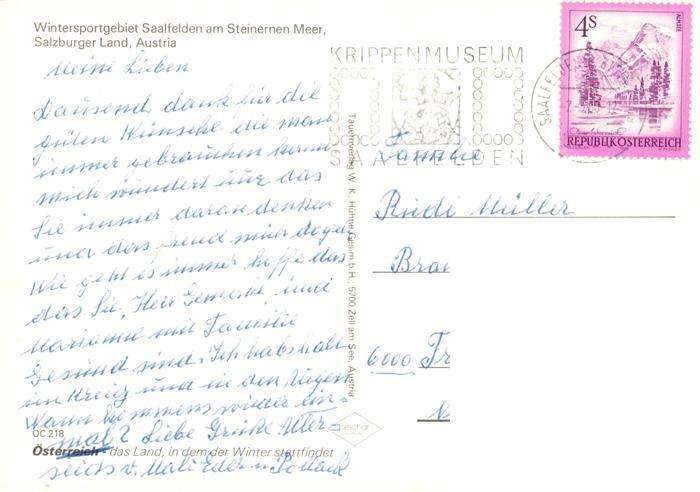 Wintersportgebiet Saalfelden am Steinernen Meer,
Salzburger Land, Austria
Meine Lieben
Dausend dank für die
guten Wünsche die man
immer gebrauchen kann
mich wundert nur das
Sie immer daran denken
und das freud mich
Wie geht es immer hoffe das
das Sie, Herr und
Marianne mit Familie
Gesund sind. Ich habs halt
im Kreiz und in den Augen
Wann kommens wieder ein-
mal? Liebe Grüße Aller-
seids v. Mali Eder u.
OC 218
Österreich - das Land, in dem der Winter stattfindet
Tauernverlag W. K. Ges.m.b.H., 5700 Zell am See, Austria
KRIPPENMUSEUM
SAALFELDEN
SAALFELDEN
4 S
ALMSEE
REPUBLIK ÖSTERREICH
Familie
Rudi Müller
Bra
6000 Fr